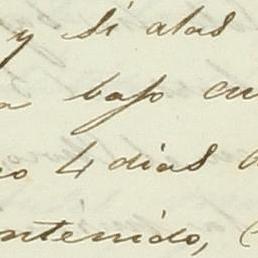 y si alas
bajo cu
4 dias
ntenido,